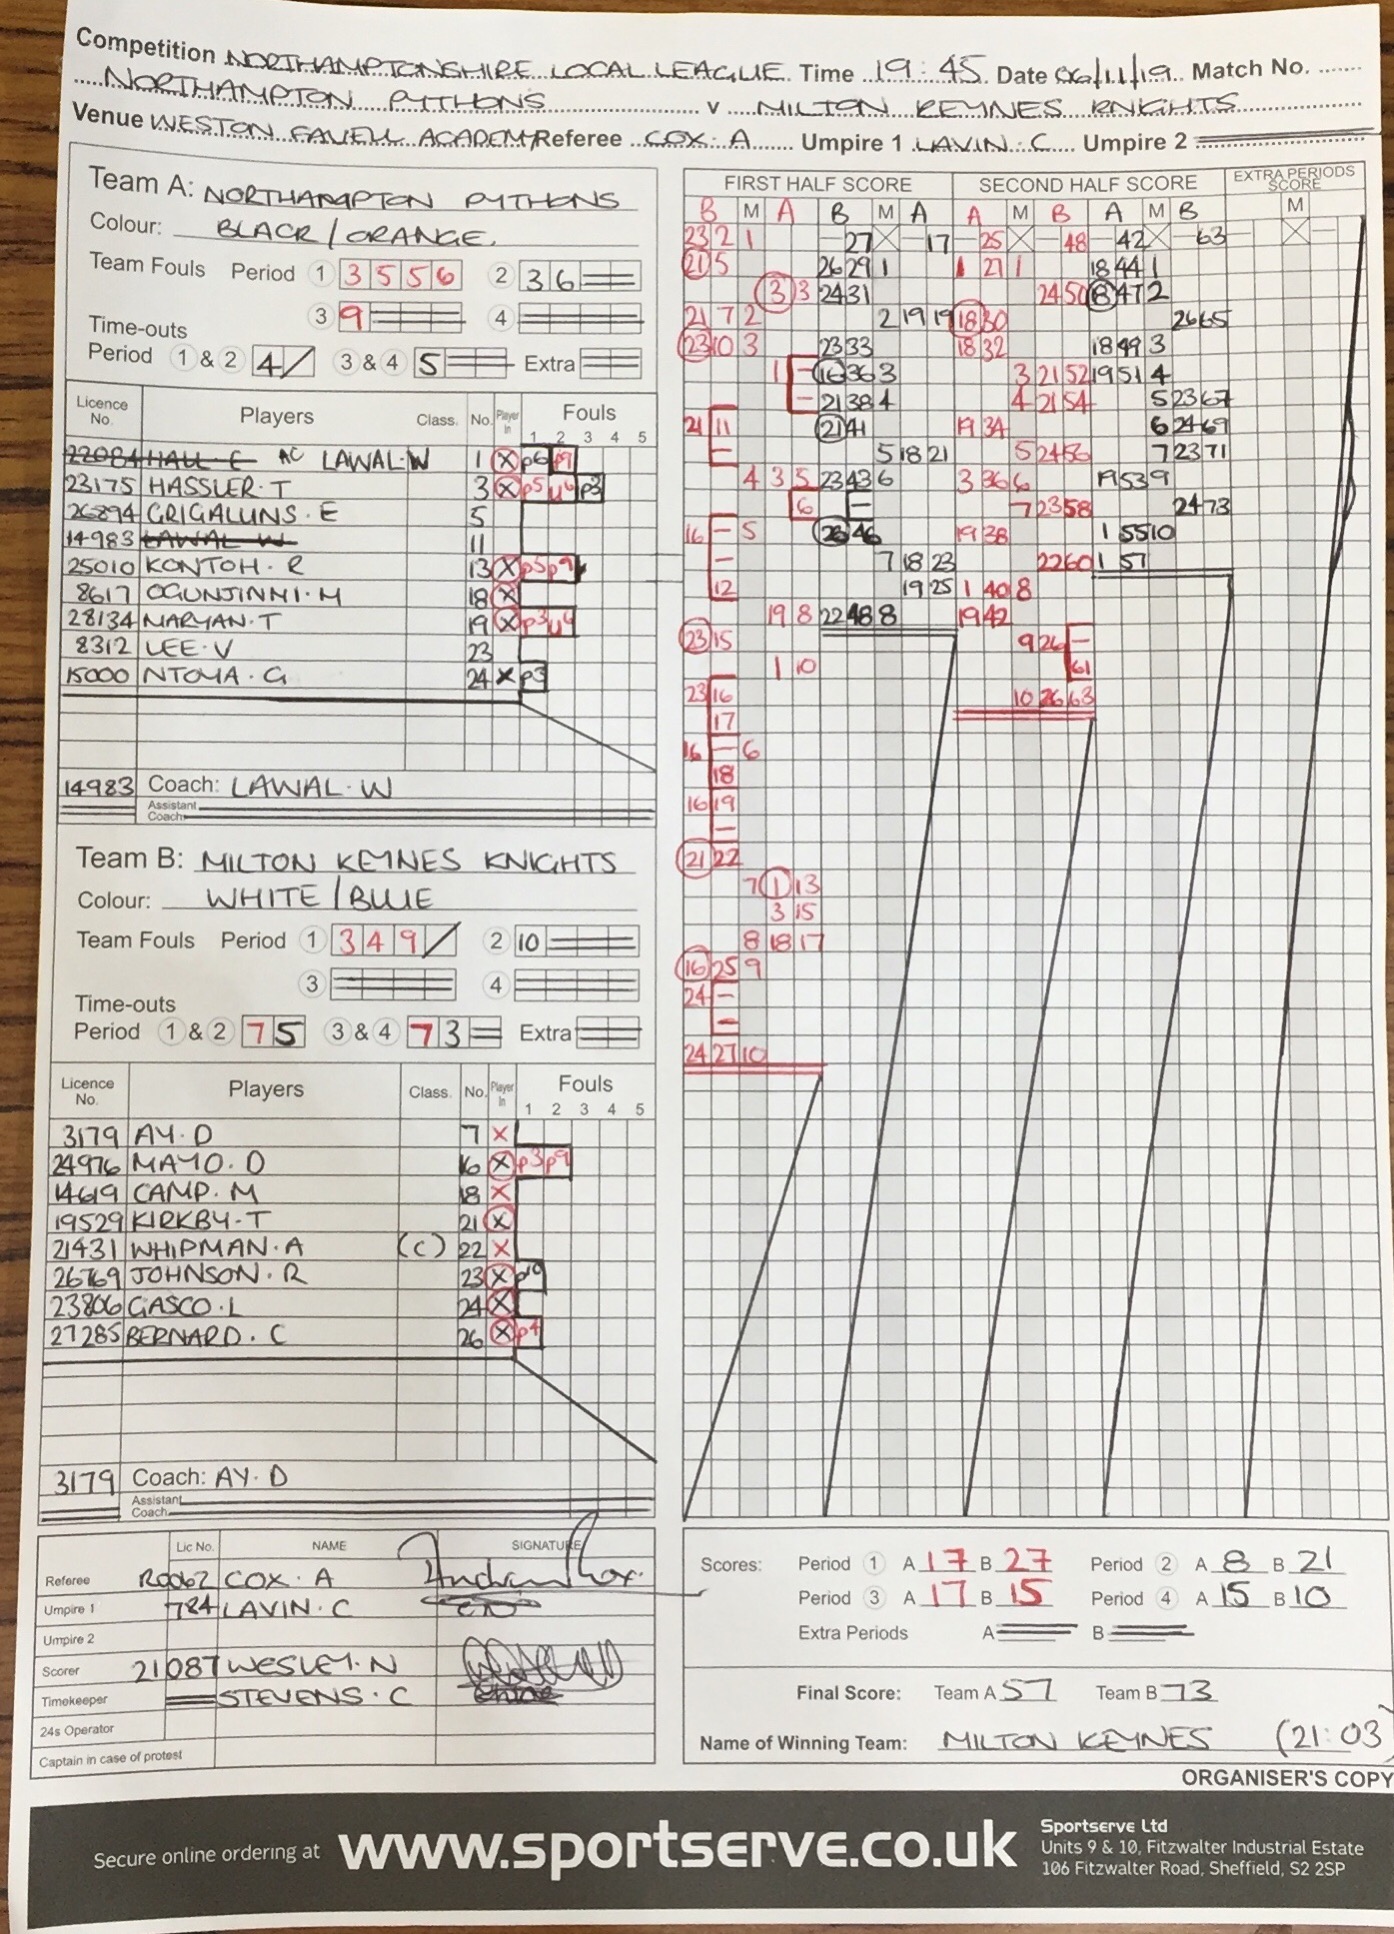 Competition NORTHAMPTONSHIRE LOCAL LEAGUE Time 19:45 Date 06/11/19 Match No.
NORTHAMPTON PYTHONS v MILTON KEYNES KNIGHTS
Venue WESTON FAVELL ACADEMY Referee COX. A Umpire 1 LAVIN. C Umpire 2
Team A: NORTHAMPTON PYTHONS
Colour: BLACK / ORANGE.
Team Fouls Period 1 3 5 5 6 2 3 6
3 9 4
Time-outs
Period 1 & 2 4 / 3 & 4 5 Extra
Licence No. Players Class. No. Player In Fouls
1 2 3 4 5
22084 HALL C AC LAWAL.W 1 X P6 P9
23175 HASSLER. T 3 X P5 U6 P3
26894 GRIGALUNS. E 5
14983 LAWAL W 11
25010 KONTOH. R 13 X P5 P9
8617 OGUNJINMI. M 18 X
28134 MARYAN. T 19 X P3 U6
8312 LEE. V 23
15000 NTOYA. G 24 X P3
14983 Coach: LAWAL. W
Assistant Coach
Team B: MILTON KEYNES KNIGHTS
Colour: WHITE / BLUE
Team Fouls Period 1 3 4 9 / 2 10
3 4
Time-outs
Period 1 & 2 7 5 3 & 4 7 3 Extra
Licence No. Players Class. No. Player In Fouls
1 2 3 4 5
3179 AY. D 7 X
24976 MAYO. D 16 X P3 P9
14619 CAMP. M 18 X
19529 KIRKBY. T 21 X
21431 WHIPMAN. A (C) 22 X
26769 JOHNSON. R 23 X P10
23806 GASCO. L 24 X
27285 BERNARD. C 26 X P4
3179 Coach: AY. D
Assistant Coach
Lic No. NAME SIGNATURE
Referee R0062 COX. A Andrew Cox
Umpire 1 784 LAVIN. C
Umpire 2
Scorer 21087 WESLEY. N
Timekeeper STEVENS. C
24s Operator
Captain in case of protest
FIRST HALF SCORE SECOND HALF SCORE EXTRA PERIODS SCORE
B M A B M A A M B A M B M
23 2 1 — 27 X — 17 — 25 X — 48 — 42 X — 63 — X —
21 5 26 29 1 1 27 1 18 44 1
3 3 24 31 24 50 18 47 2
21 7 2 2 19 19 18 30 26 65
23 10 3 23 33 18 32 18 49 3
1 — 16 36 3 3 21 52 19 51 4
— 21 38 4 4 21 54 5 23 67
21 11 21 41 19 34 6 24 69
— 5 18 21 5 24 56 7 23 71
4 3 5 23 43 6 3 36 6 19 53 9
6 — 7 23 58 24 73
16 — 5 23 46 19 38 1 55 10
— 7 18 23 22 60 1 57
12 19 25 1 40 8
19 8 22 48 8 19 42
23 15 9 26 —
1 10 61
23 16 10 26 63
17
16 — 6
18
16 19
—
21 22
7 1 13
3 15
8 18 17
16 25 9
24 —
—
24 27 10
Scores: Period 1 A 17 B 27 Period 2 A 8 B 21
Period 3 A 17 B 15 Period 4 A 15 B 10
Extra Periods A B
Final Score: Team A 57 Team B 73
Name of Winning Team: MILTON KEYNES (21:03)
ORGANISER'S COPY
Secure online ordering at www.sportserve.co.uk
Sportserve Ltd
Units 9 & 10, Fitzwalter Industrial Estate
106 Fitzwalter Road, Sheffield, S2 2SP